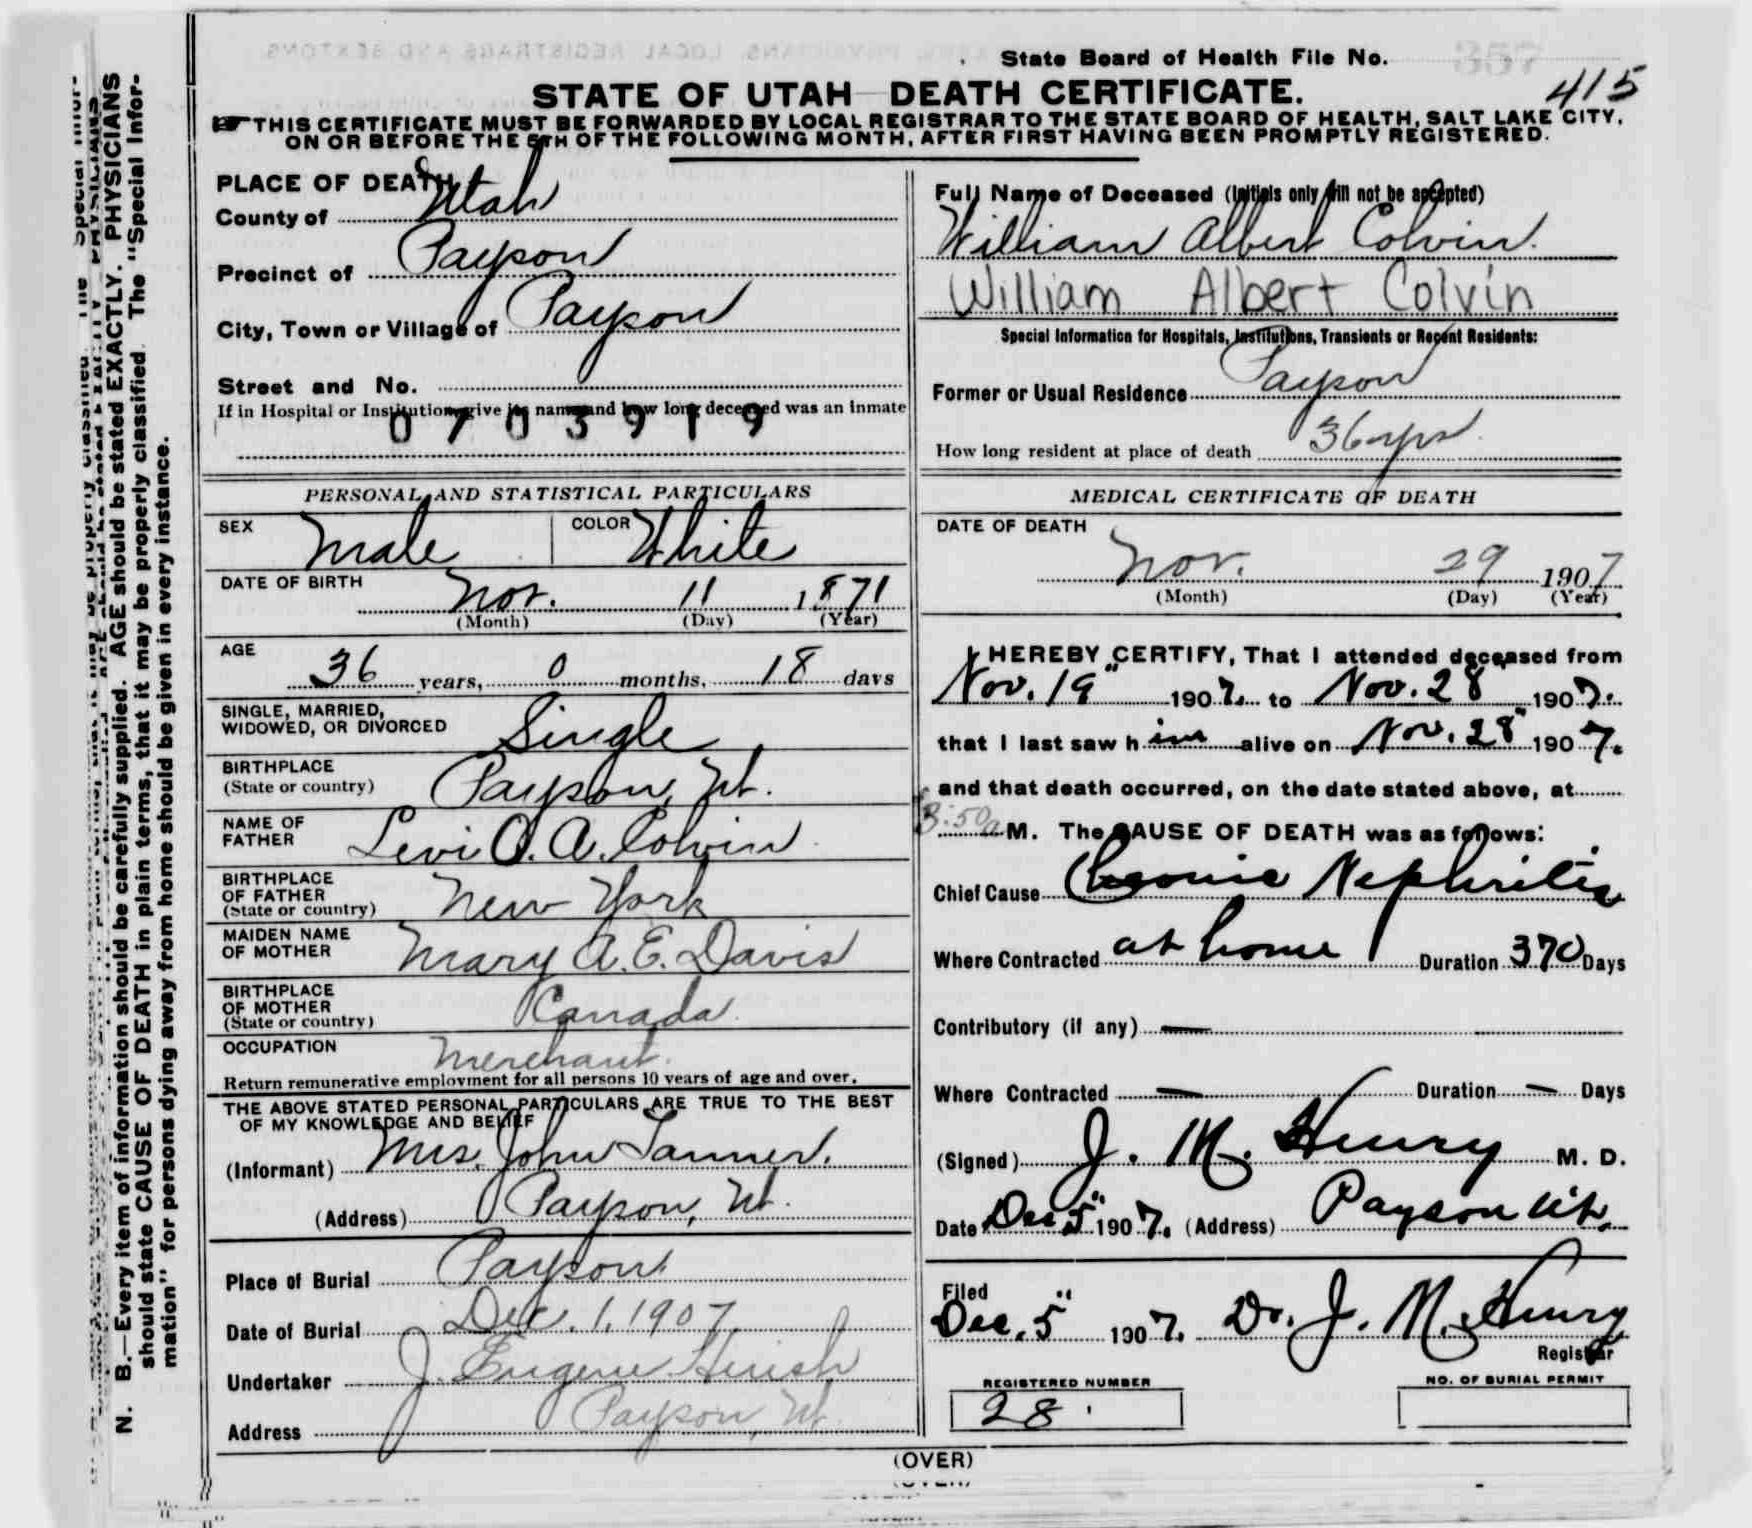 State Board of Health File No.
357
415
STATE OF UTAH DEATH CERTIFICATE.
THIS CERTIFICATE MUST BE FORWARDED BY LOCAL REGISTRAR TO THE STATE BOARD OF HEALTH, SALT LAKE CITY,
ON OR BEFORE THE 5TH OF THE FOLLOWING MONTH, AFTER FIRST HAVING BEEN PROMPTLY REGISTERED.
N. B.—Every item of information should be carefully supplied. AGE should be stated EXACTLY. PHYSICIANS
should state CAUSE OF DEATH in plain terms, that it may be properly classified. The "Special Infor-
mation" for persons dying away from home should be given in every instance.
PLACE OF DEATH
County of Utah
Precinct of Payson
City, Town or Village of Payson
Street and No.
If in Hospital or Institution, give its name and how long deceased was an inmate
0703919
Full Name of Deceased (Initials only will not be accepted)
William Albert Colvin.
William Albert Colvin
Special Information for Hospitals, Institutions, Transients or Recent Residents:
Former or Usual Residence Payson
How long resident at place of death 36 yrs.
PERSONAL AND STATISTICAL PARTICULARS
SEX Male COLOR White
DATE OF BIRTH Nov. 11 1871
(Month) (Day) (Year)
AGE 36 years, 0 months, 18 days
SINGLE, MARRIED,
WIDOWED, OR DIVORCED Single
BIRTHPLACE
(State or country) Payson, Ut.
NAME OF
FATHER Levi O. A. Colvin
BIRTHPLACE
OF FATHER
(State or country) New York
MAIDEN NAME
OF MOTHER Mary A. E. Davis
BIRTHPLACE
OF MOTHER
(State or country) Canada.
OCCUPATION Merchant.
Return remunerative employment for all persons 10 years of age and over.
THE ABOVE STATED PERSONAL PARTICULARS ARE TRUE TO THE BEST
OF MY KNOWLEDGE AND BELIEF
(Informant) Mrs. John Tanner.
(Address) Payson, Ut.
Place of Burial Payson
Date of Burial Dec. 1, 1907
Undertaker J. Eugene
Address Payson, Ut.
MEDICAL CERTIFICATE OF DEATH
DATE OF DEATH
Nov. 29 1907
(Month) (Day) (Year)
I HEREBY CERTIFY, That I attended deceased from
Nov. 19" 1907. to Nov. 28" 1907.
that I last saw him alive on Nov. 28" 1907.
and that death occurred, on the date stated above, at
3:50 a M. The CAUSE OF DEATH was as follows:
Chief Cause Chronic Nephritis
Where Contracted at home Duration 370 Days
Contributory (if any) —
Where Contracted — Duration — Days
(Signed) J. M. Henry M. D.
Date Dec 5" 1907. (Address) Payson Ut.
Filed
Dec. 5" 1907. Dr. J. M. Henry
Registrar
REGISTERED NUMBER
28.
NO. OF BURIAL PERMIT
(OVER)